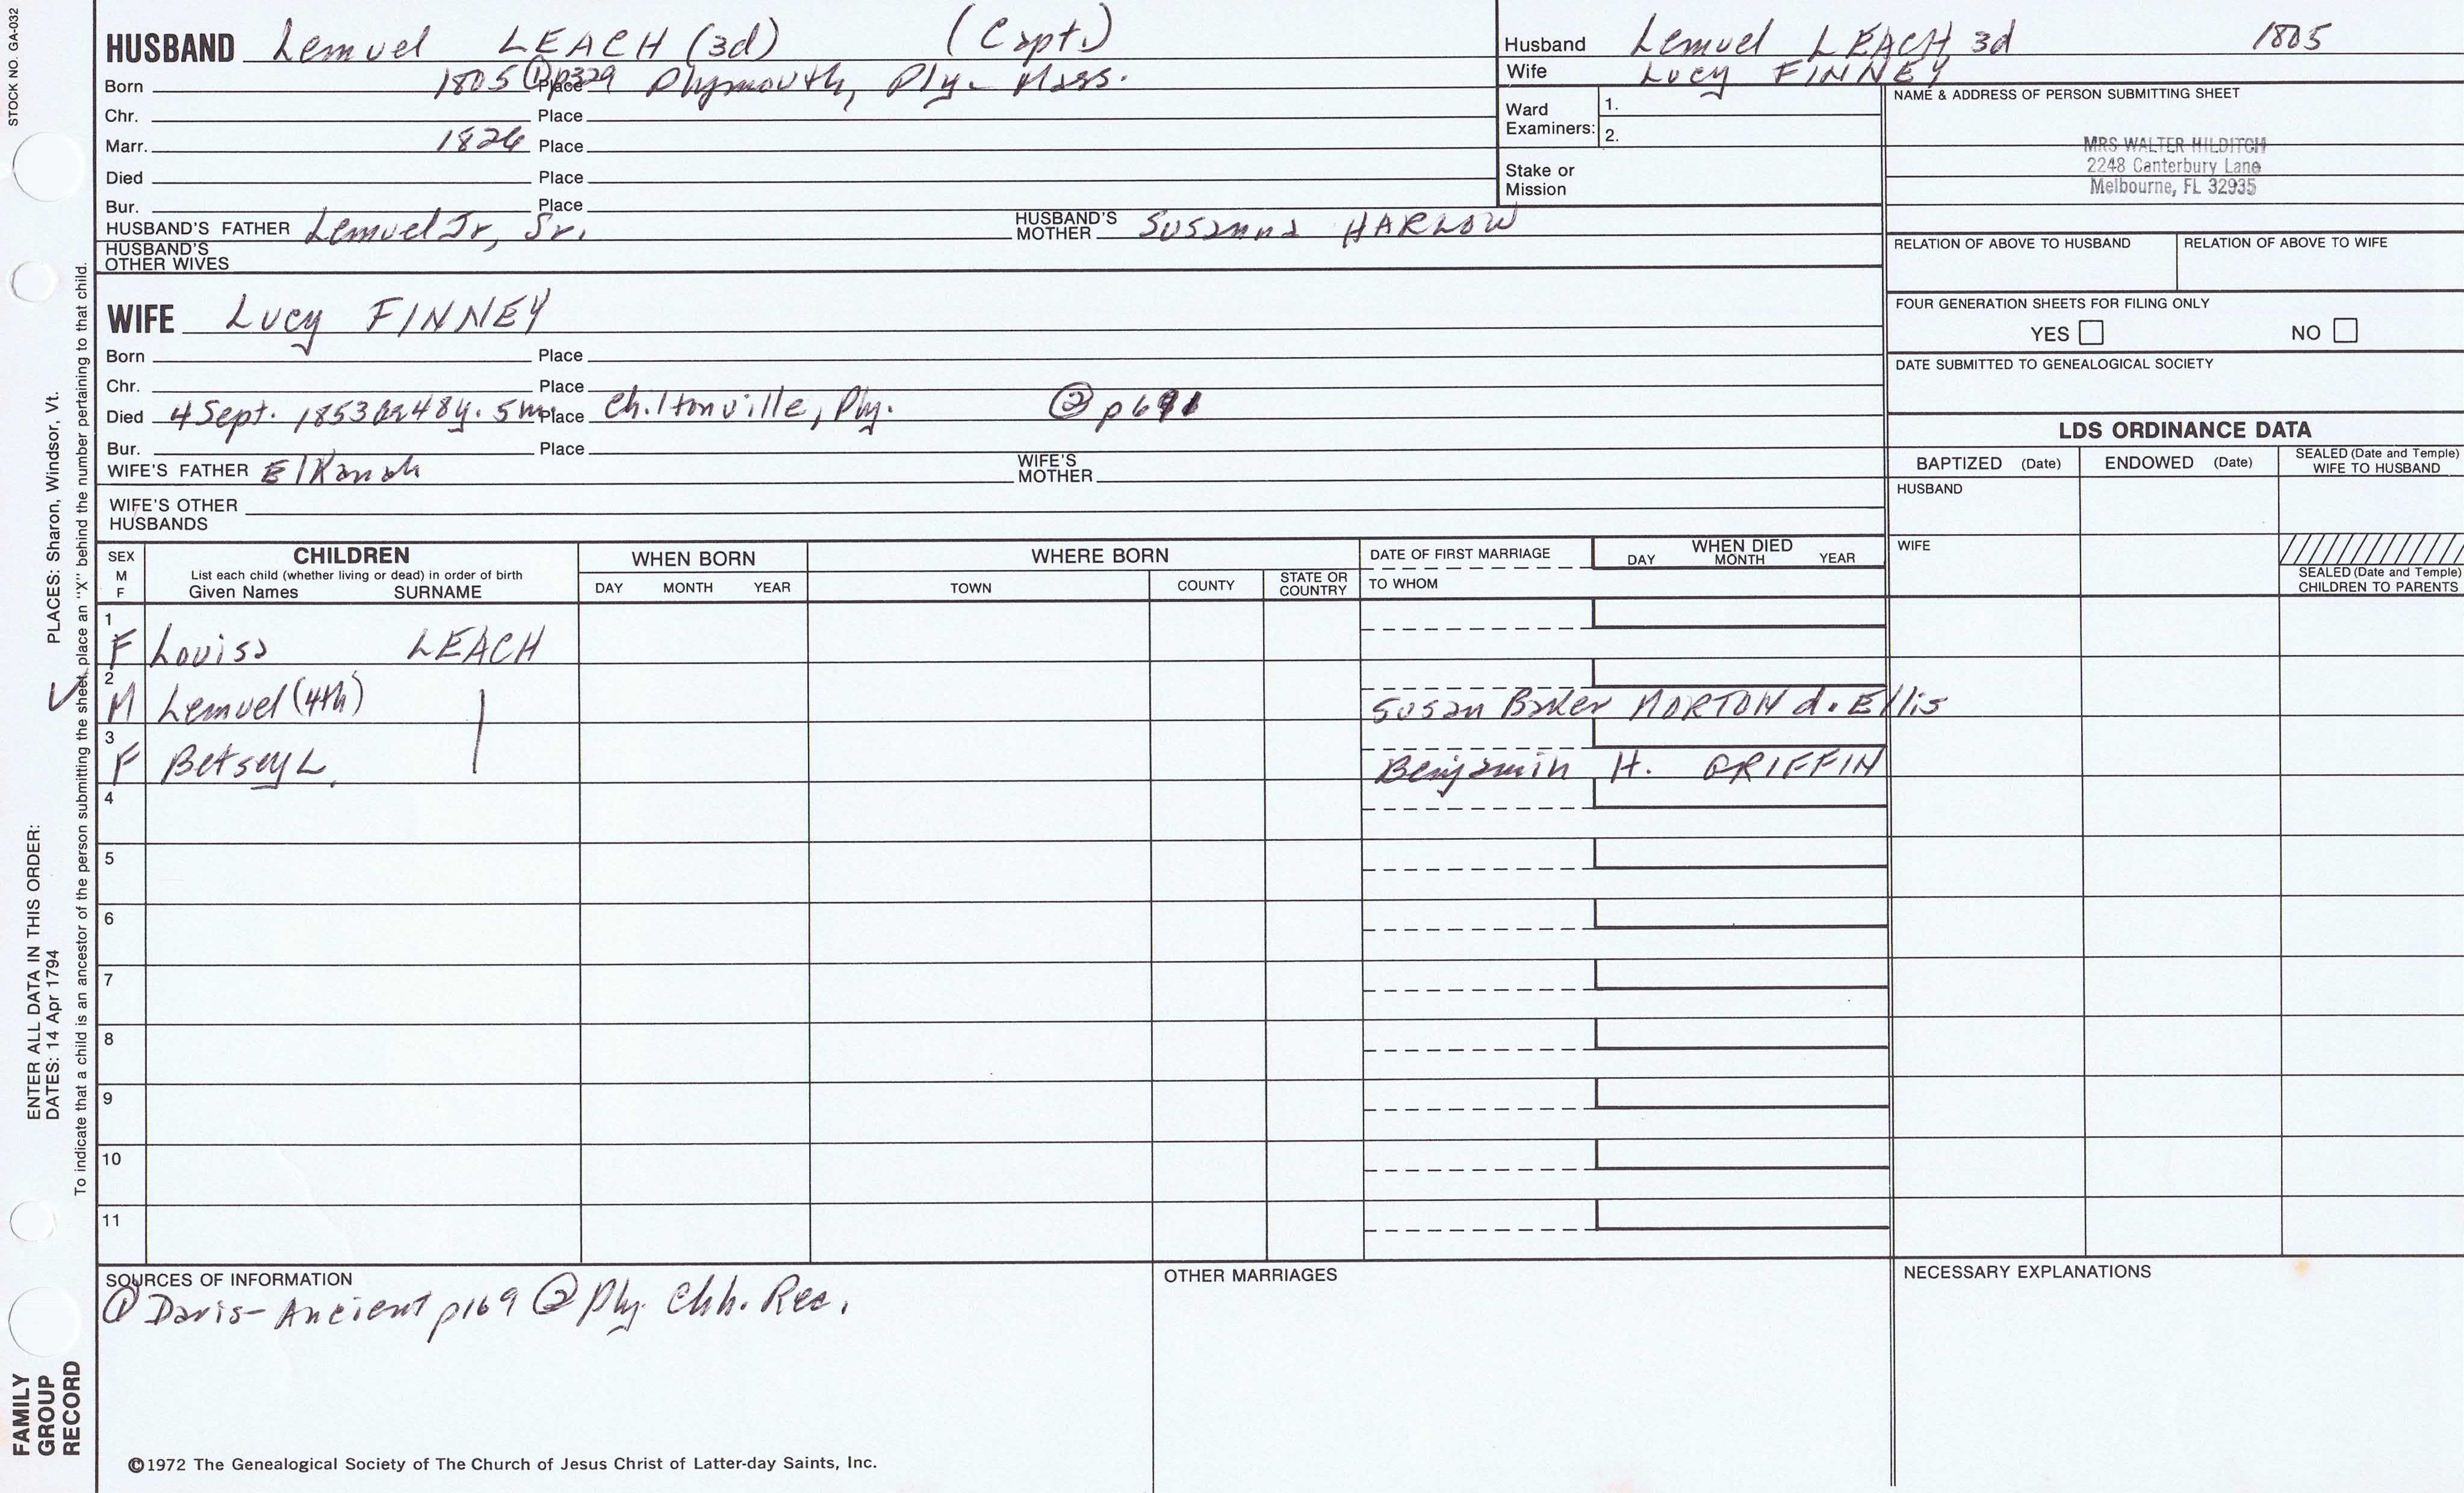 STOCK NO. GA-032
HUSBAND Lemuel LEACH (3d) (Capt.)
Born 1805 ① p329 Place Plymouth, Ply. Mass.
Chr. Place
Marr. 1826 Place
Died Place
Bur. Place
HUSBAND'S FATHER Lemuel Jr, Sr. HUSBAND'S MOTHER Susanna HARLOW
HUSBAND'S OTHER WIVES
Husband Lemuel LEACH 3d 1805
Wife Lucy FINNEY
Ward Examiners: 1.
2.
Stake or Mission
NAME & ADDRESS OF PERSON SUBMITTING SHEET
MRS WALTER HILDITCH
2248 Canterbury Lane
Melbourne, FL 32935
RELATION OF ABOVE TO HUSBAND RELATION OF ABOVE TO WIFE
FOUR GENERATION SHEETS FOR FILING ONLY
YES NO
DATE SUBMITTED TO GENEALOGICAL SOCIETY
WIFE Lucy FINNEY
Born Place
Chr. Place
Died 4 Sept. 1853 ae 48y. 5m Place Chiltonville, Ply. ②
Bur. Place
WIFE'S FATHER Elkanah WIFE'S MOTHER
WIFE'S OTHER HUSBANDS
LDS ORDINANCE DATA
BAPTIZED (Date) ENDOWED (Date) SEALED (Date and Temple) WIFE TO HUSBAND
HUSBAND
WIFE
SEALED (Date and Temple) CHILDREN TO PARENTS
SEX M F
CHILDREN
List each child (whether living or dead) in order of birth
Given Names SURNAME
WHEN BORN
DAY MONTH YEAR
WHERE BORN
TOWN COUNTY STATE OR COUNTRY
DATE OF FIRST MARRIAGE
TO WHOM
WHEN DIED
DAY MONTH YEAR
1 F Louisa LEACH
2 M Lemuel (4th) Susan Baker MORTON d. Ellis
3 F Betsey L. Benjamin H. GRIFFIN
4
5
6
7
8
9
10
11
SOURCES OF INFORMATION
① Davis-Ancient p169 ② Ply. Chh. Rec.
OTHER MARRIAGES
NECESSARY EXPLANATIONS
©1972 The Genealogical Society of The Church of Jesus Christ of Latter-day Saints, Inc.
ENTER ALL DATA IN THIS ORDER:
DATES: 14 Apr 1794
PLACES: Sharon, Windsor, Vt.
To indicate that a child is an ancestor of the person submitting the sheet, place an "X" behind the number pertaining to that child.
FAMILY
GROUP
RECORD